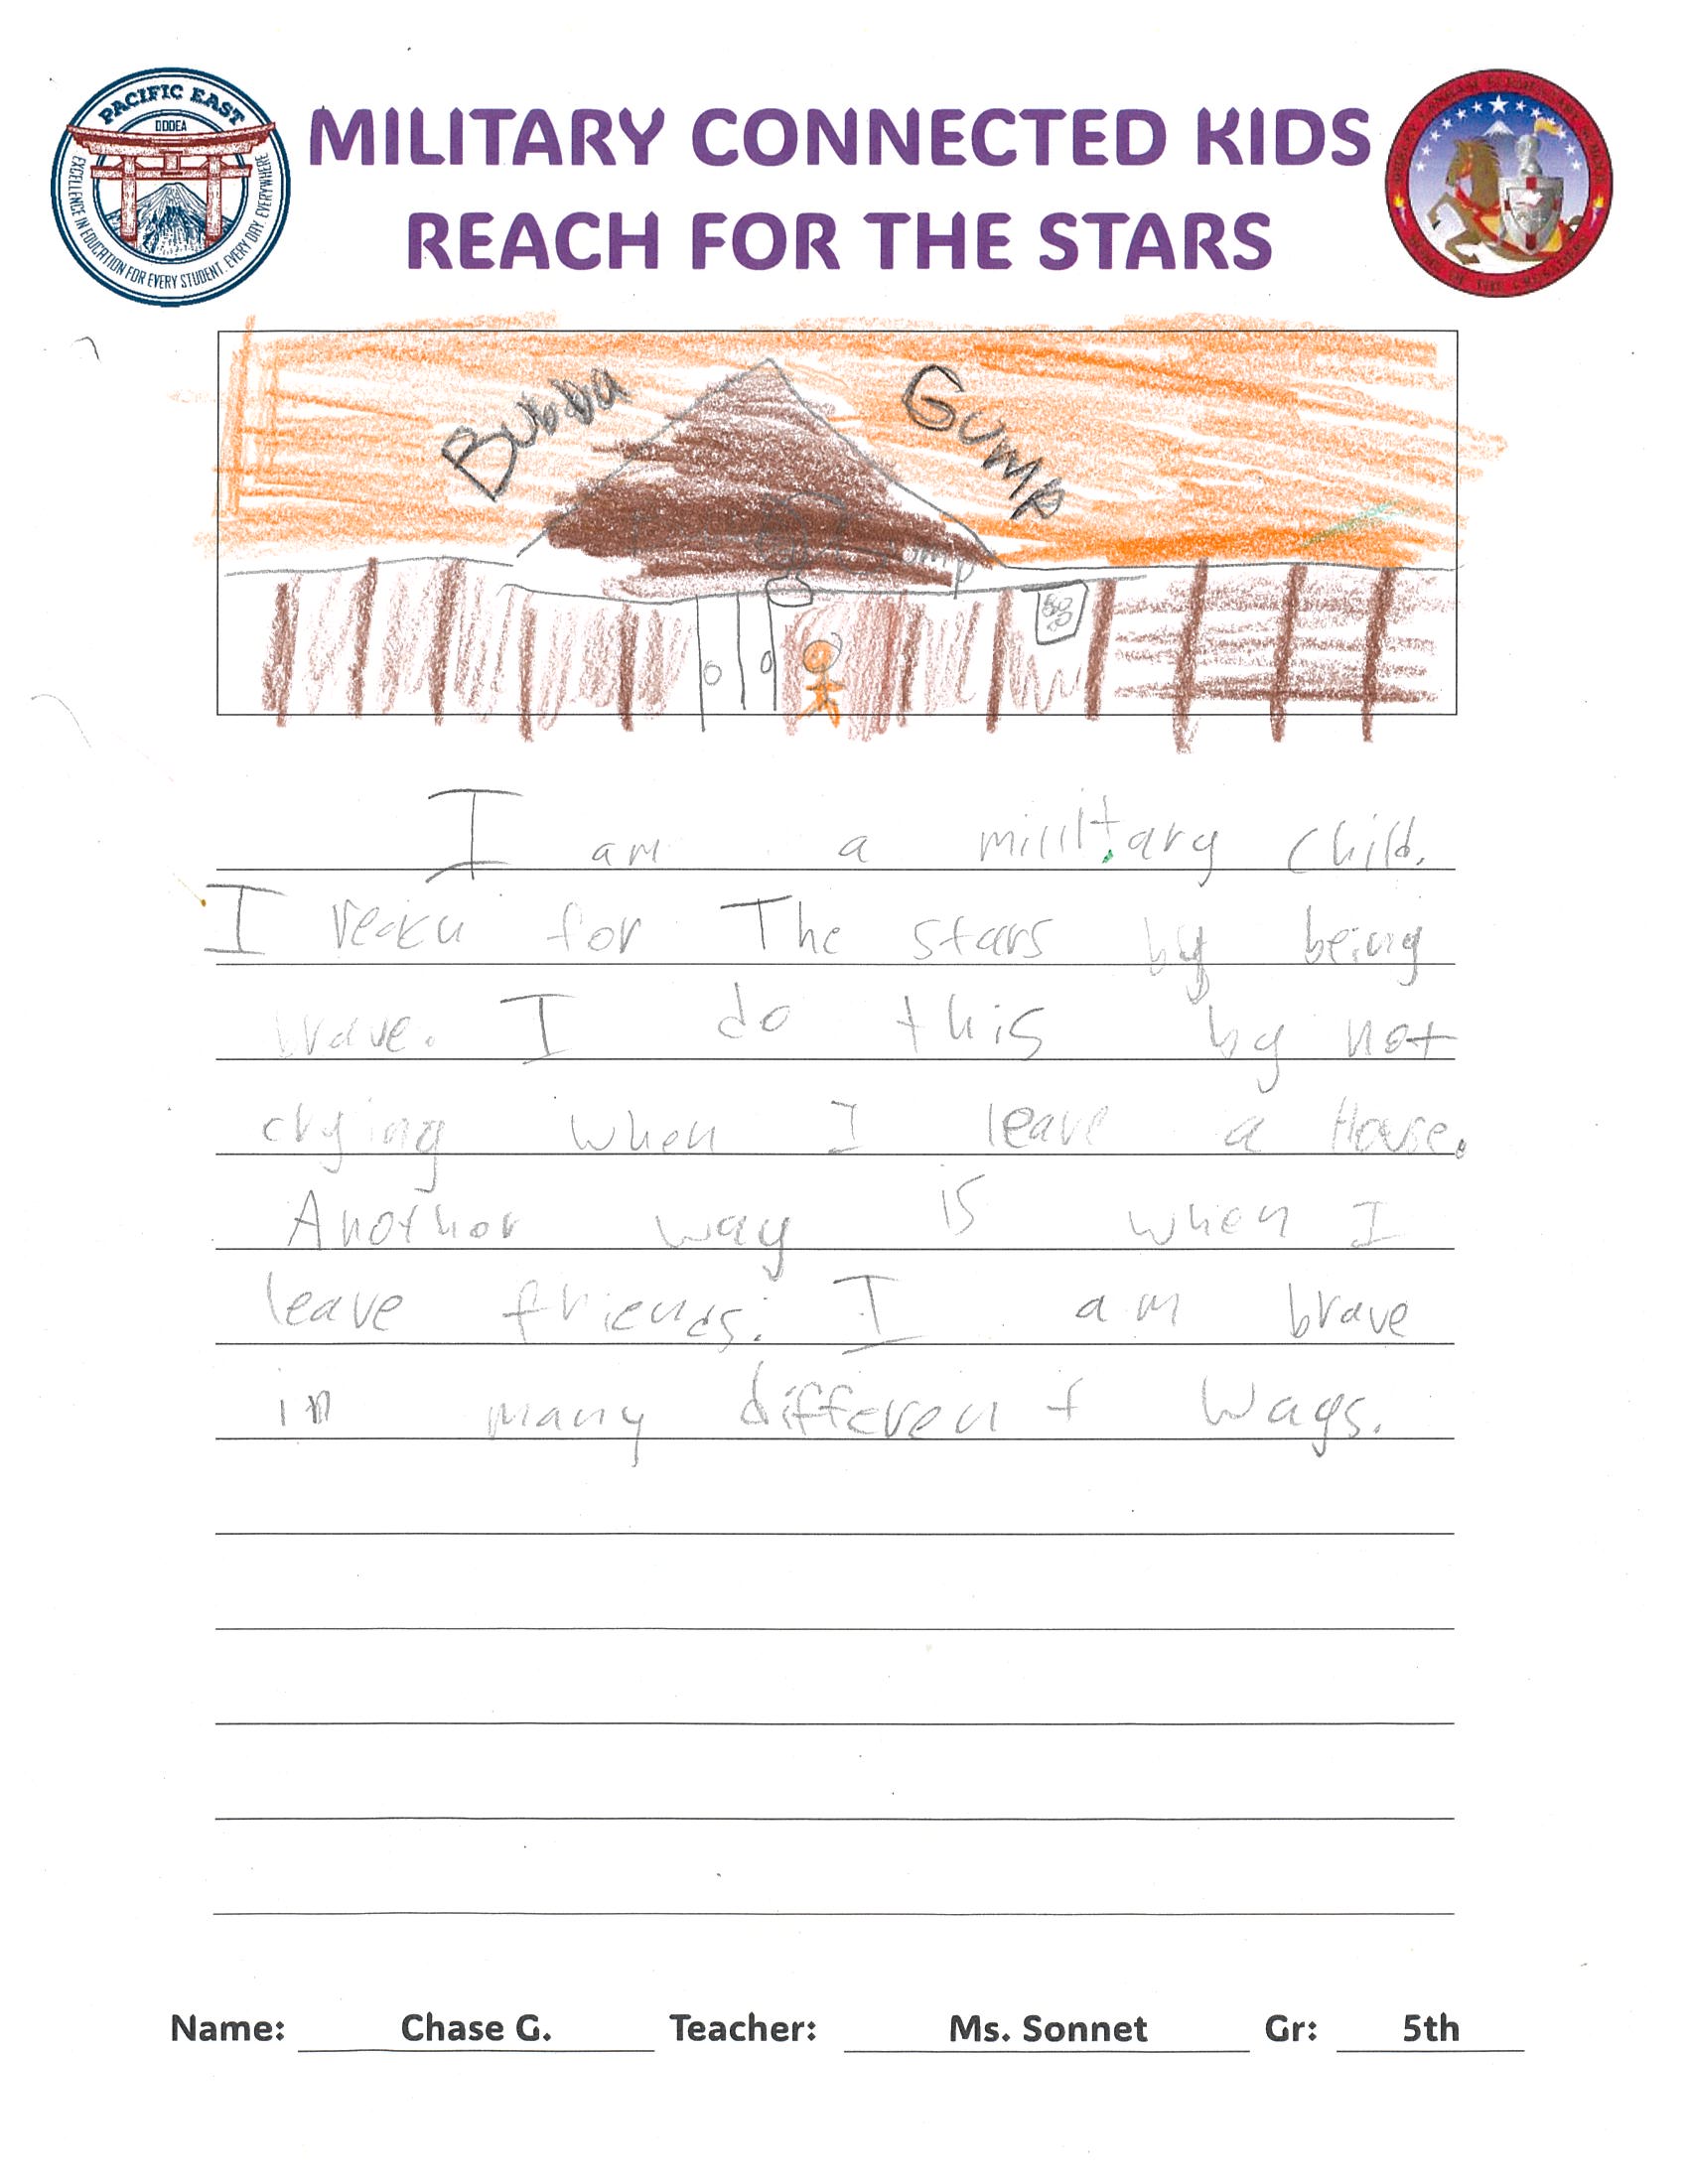 PACIFIC EAST
DODEA
EXCELLENCE IN EDUCATION FOR EVERY STUDENT, EVERY DAY, EVERYWHERE
MILITARY CONNECTED KIDS
REACH FOR THE STARS
Bubba Gump
I am a military child.
I reach for The stars by being
brave. I do this by not
crying when I leave a House.
Another way is when I
leave friends. I am brave
in many different ways.
Name: Chase G. Teacher: Ms. Sonnet Gr: 5th